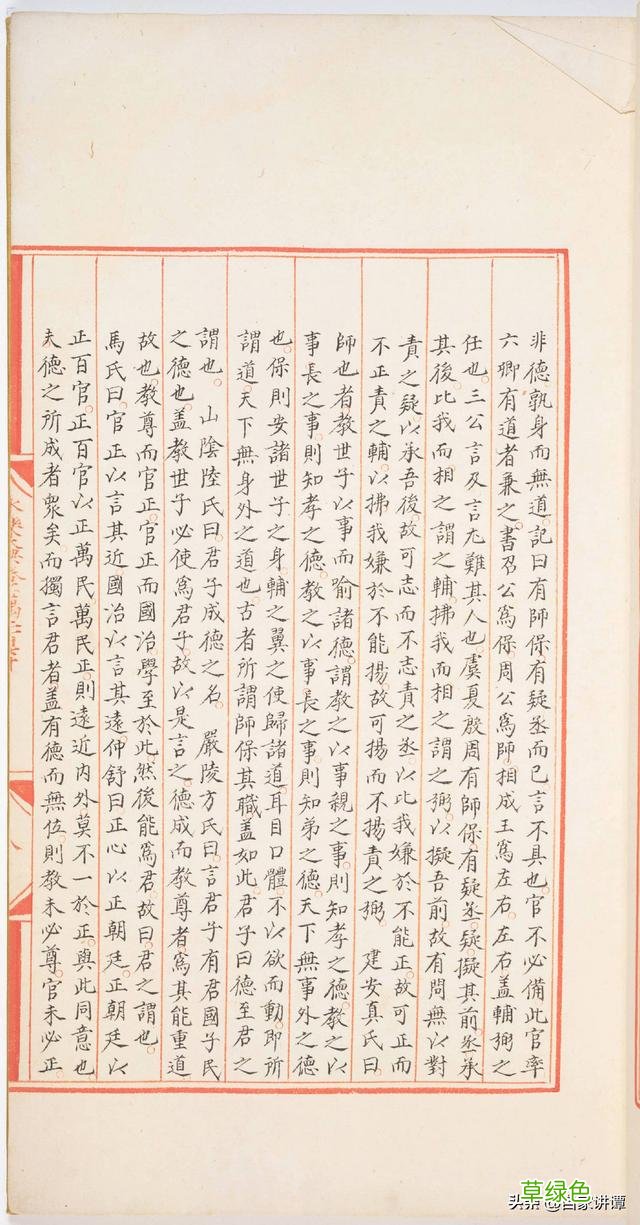 非德孰身而無道。記曰有師保有疑丞而已言不具也。官不必備此官率
六卿有道者兼之。書召公爲保。周公爲師。相成王爲左右。左右蓋輔弼之
任也。三公言及言尤難其人也。虞夏殷周有師保有疑丞。疑擬其前。丞承
其後。比我而相之謂之輔。拂我而相之謂之弼。以擬吾前故有問無以對
責之疑。以承吾後故可志而不志責之丞。以比我嫌於不能正。故可正而
不正責之輔。以拂我嫌於不能揚故可揚而不揚責之弼。 建安真氏曰。
師也者教世子以事而喻諸德。謂教之以事親之事。則知孝之德。教之以
事長之事。則知孝之德。教之以事長之事則知弟之德。天下無事外之德
也。保則安諸世子之身。輔之翼之使歸諸道。耳目口體不以欲而動。即所
謂道。天下無身外之道也。古者所謂師保其職蓋如此。君子曰德至君之
謂也。 山陰陸氏曰。君子成德之名。 嚴陵方氏曰。言君子有君國子民
之德也。蓋教世子必使爲君子。故以是言之。德成而教尊者。爲其能重道
故也。教尊而官正。官正而國治。學至於此。然後能爲君。故曰君之謂也。
馬氏曰。官正以言其近。國治以言其遠。仲舒曰。正心以正朝廷。正朝廷以
正百官。正百官以正萬民。萬民正。則遠近內外莫不一於正。與此同意也。
夫德之所成者眾矣。而獨言君者。蓋有德而無位。則教未必尊。官未必正。
草绿色